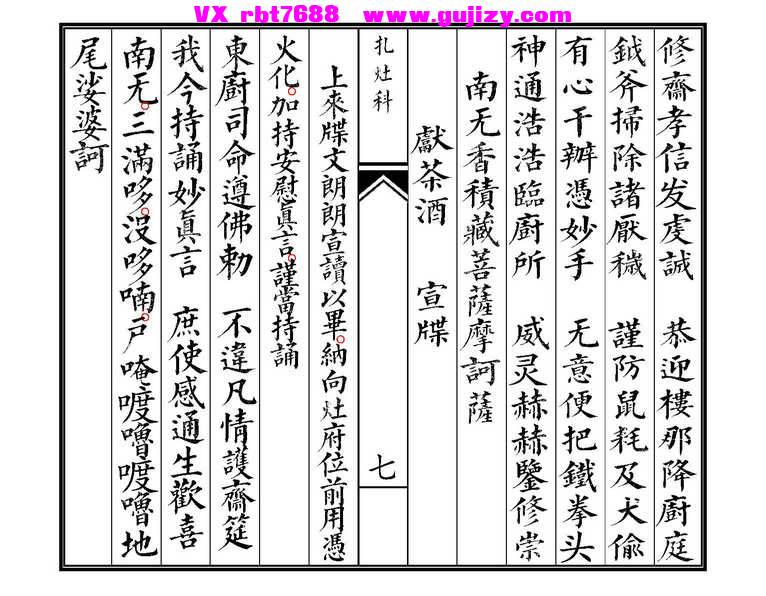 VX rbt7688 www.gujizy.com
修齋孝信发虔誠 恭迎樓那降廚庭
鉞斧掃除諸厭穢 謹防鼠耗及犬偷
有心干辦憑妙手 无意便把鐵拳头
神通浩浩臨廚所 威灵赫赫鑒修崇
南无香積藏菩薩摩訶薩
獻茶酒 宣牒
扎灶科
七
上來牒文朗朗宣讀以畢。納向灶府位前用憑
火化。加持安慰眞言。謹當持誦
東廚司命遵佛勅 不違凡情護齋筵
我今持誦妙眞言 庶使感通生歡喜
南无。三滿哆。沒哆喃。戸唵喥嚕喥嚕地
尾娑婆訶